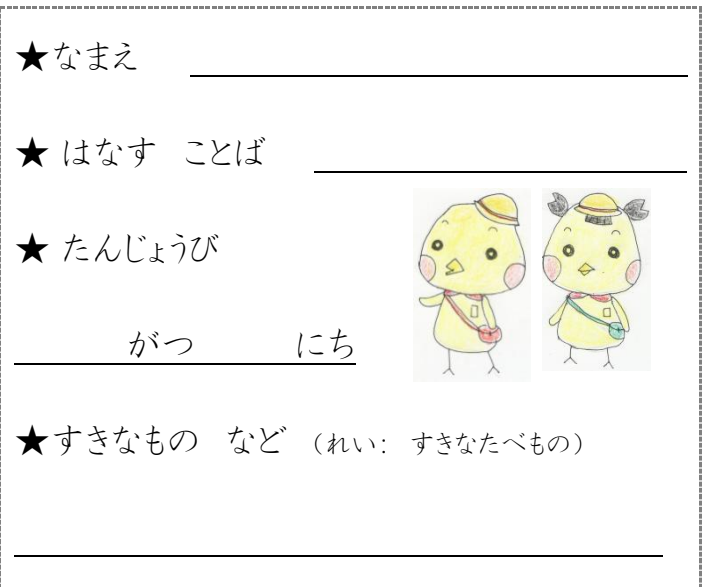 ★なまえ
★ はなす ことば
★ たんじょうび
がつ にち
★すきなもの など (れい: すきなたべもの)